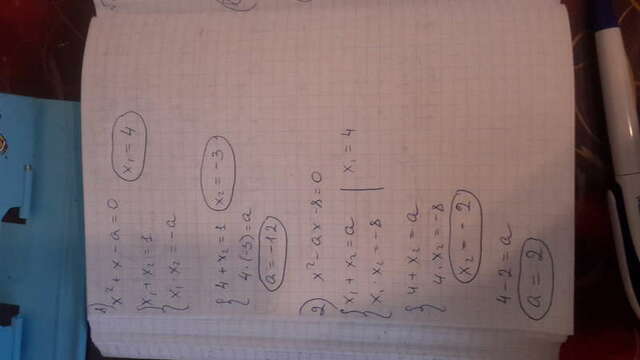 1) x² + x - a = 0   x₁ = 4
{ x₁ + x₂ = 1
{ x₁ x₂ = -a
{ 4 + x₂ = 1   x₂ = -3
{ 4 · (-3) = a
a = -12
2) x² - ax - 8 = 0
{ x₁ + x₂ = a | x₁ = 4
{ x₁ · x₂ = -8
{ 4 + x₂ = a
{ 4 · x₂ = -8
x₂ = -2
4 - 2 = a
a = 2